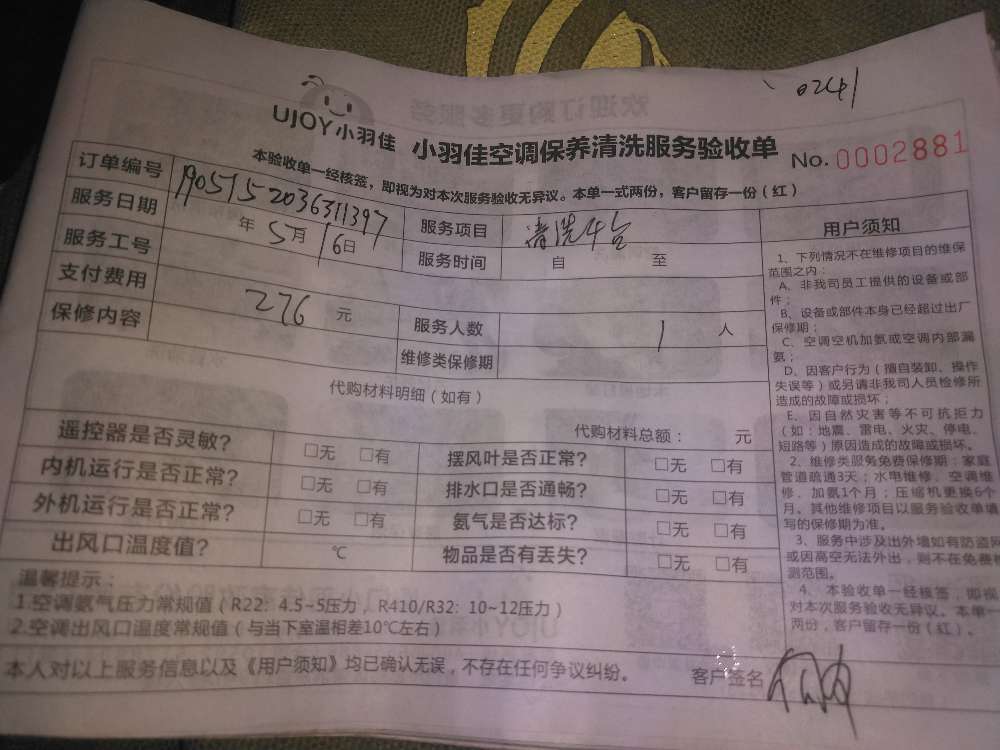 0241
UJOY小羽佳 小羽佳空调保养清洗服务验收单 No. 0002881
本验收单一经核签，即视为对本次服务验收无异议。本单一式两份，客户留存一份（红）
订单编号 190515 2036311397 服务项目 清洗4台
服务日期 年 5月 16日 服务时间 自 至
服务工号
支付费用 276 元 服务人数 1 人
保修内容 维修类保修期
代购材料明细（如有）
代购材料总额： 元
遥控器是否灵敏? □无 □有 摆风叶是否正常? □无 □有
内机运行是否正常? □无 □有 排水口是否通畅? □无 □有
外机运行是否正常? □无 □有 氨气是否达标? □无 □有
出风口温度值? ℃ 物品是否有丢失? □无 □有
温馨提示：
1.空调氨气压力常规值（R22：4.5~5压力，R410/R32：10~12压力）
2.空调出风口温度常规值（与当下室温相差10℃左右）
本人对以上服务信息以及《用户须知》均已确认无误，不存在任何争议纠纷。 客户签名
用户须知
1、下列情况不在维修项目的维保
范围之内：
A、非我司员工提供的设备或部
件；
B、设备或部件本身已经超过出厂
保修期；
C、空调空机加氨或空调内部漏
氨；
D、因客户行为（擅自装卸、操作
失误等）或另请非我司人员检修所
造成的故障或损坏；
E、因自然灾害等不可抗拒力
（如：地震、雷电、火灾、停电、
短路等）原因造成的故障或损坏。
2、维修类服务免费保修期：家庭
管道疏通3天；水电维修、空调维
修、加氨1个月；压缩机更换6个
月。其他维修项目以服务验收单填
写的保修期为准。
3、服务中涉及出外墙如有防盗网
或因高空无法外出，则不在免费检
测范围。
4、本验收单一经核签，即视
对本次服务验收无异议。本单一
两份，客户留存一份（红）。